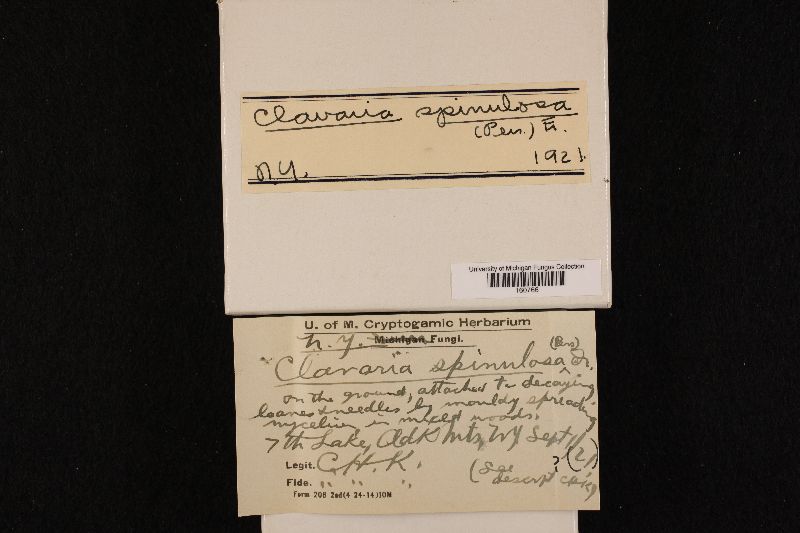 Clavaria spinulosa
(Pers.) Fr.
N.Y. 1921.
University of Michigan Fungus Collection
U. of M. Cryptogamic Herbarium
N.Y. Michigan Fungi.
(Pers)
Clavaria spinulosa Fr.
on the ground, attached to decaying
leaves & needles by mouldy spreading
mycelium in mixed woods.
7th Lake, Adk Mts, NY Sept
Legit. C.H.K.
(See ?
descript
Fide. " " "
Form 208 2nd(4 24-14)10M